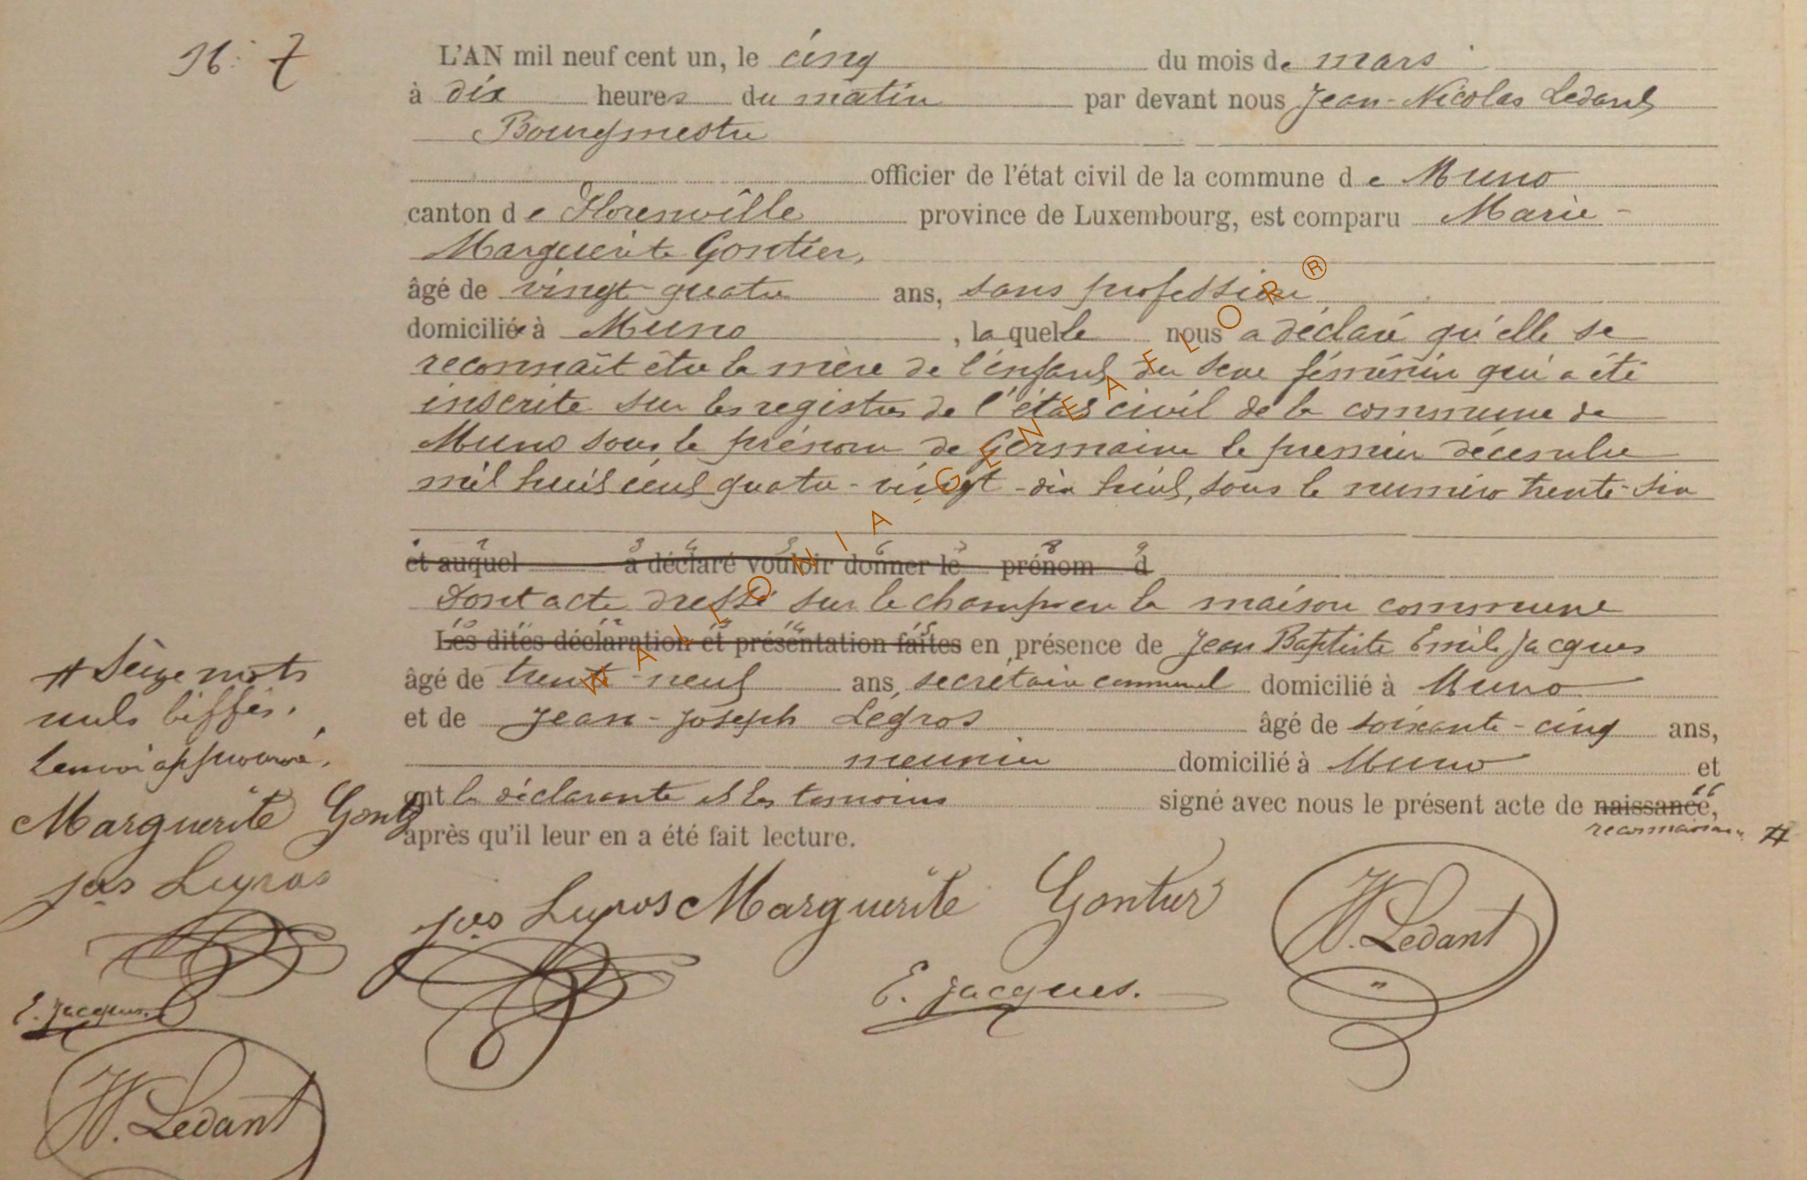 N: 7
L'AN mil neuf cent un, le cinq du mois de mars
à dix heures du matin par devant nous Jean-Nicolas Ledant
Bourgmestre
officier de l'état civil de la commune de Muno
canton de Florenville province de Luxembourg, est comparu Marie-
Marguerite Gontier,
âgé de vingt-quatre ans, sans profession
domiciliée à Muno, laquelle nous a déclaré qu'elle se
reconnaît être la mère de l'enfant du sexe féminin qui a été
inscrite sur les registres de l'état civil de la commune de
Muno sous le prénom de Germaine le premier décembre
mil huit cent quatre-vingt-dix huit, sous le numéro trente-six
1 2 3 4 5 6 7 8 9
et auquel a déclaré vouloir donner le prénom d
Dont acte dressé sur le champ en la maison commune
10 11 12 13 14 15
Les dites déclaration et présentation faites en présence de Jean Baptiste Emile Jacques
âgé de trente-neuf ans, secrétaire communal domicilié à Muno
et de Jean-Joseph Legros âgé de soixante-cinq ans,
meunier domicilié à Muno et
ont la déclarante et les témoins signé avec nous le présent acte de naissance, 16
reconnaissance #
après qu'il leur en a été fait lecture.
# Seize mots
nuls biffés.
Renvoi approuvé.
Marguerite Gontier
Jos Legros
E. Jacques.
N. Ledant
Jos Legros Marguerite Gontier
E. Jacques.
N. Ledant
WALLONIA-GENEAFLOR®